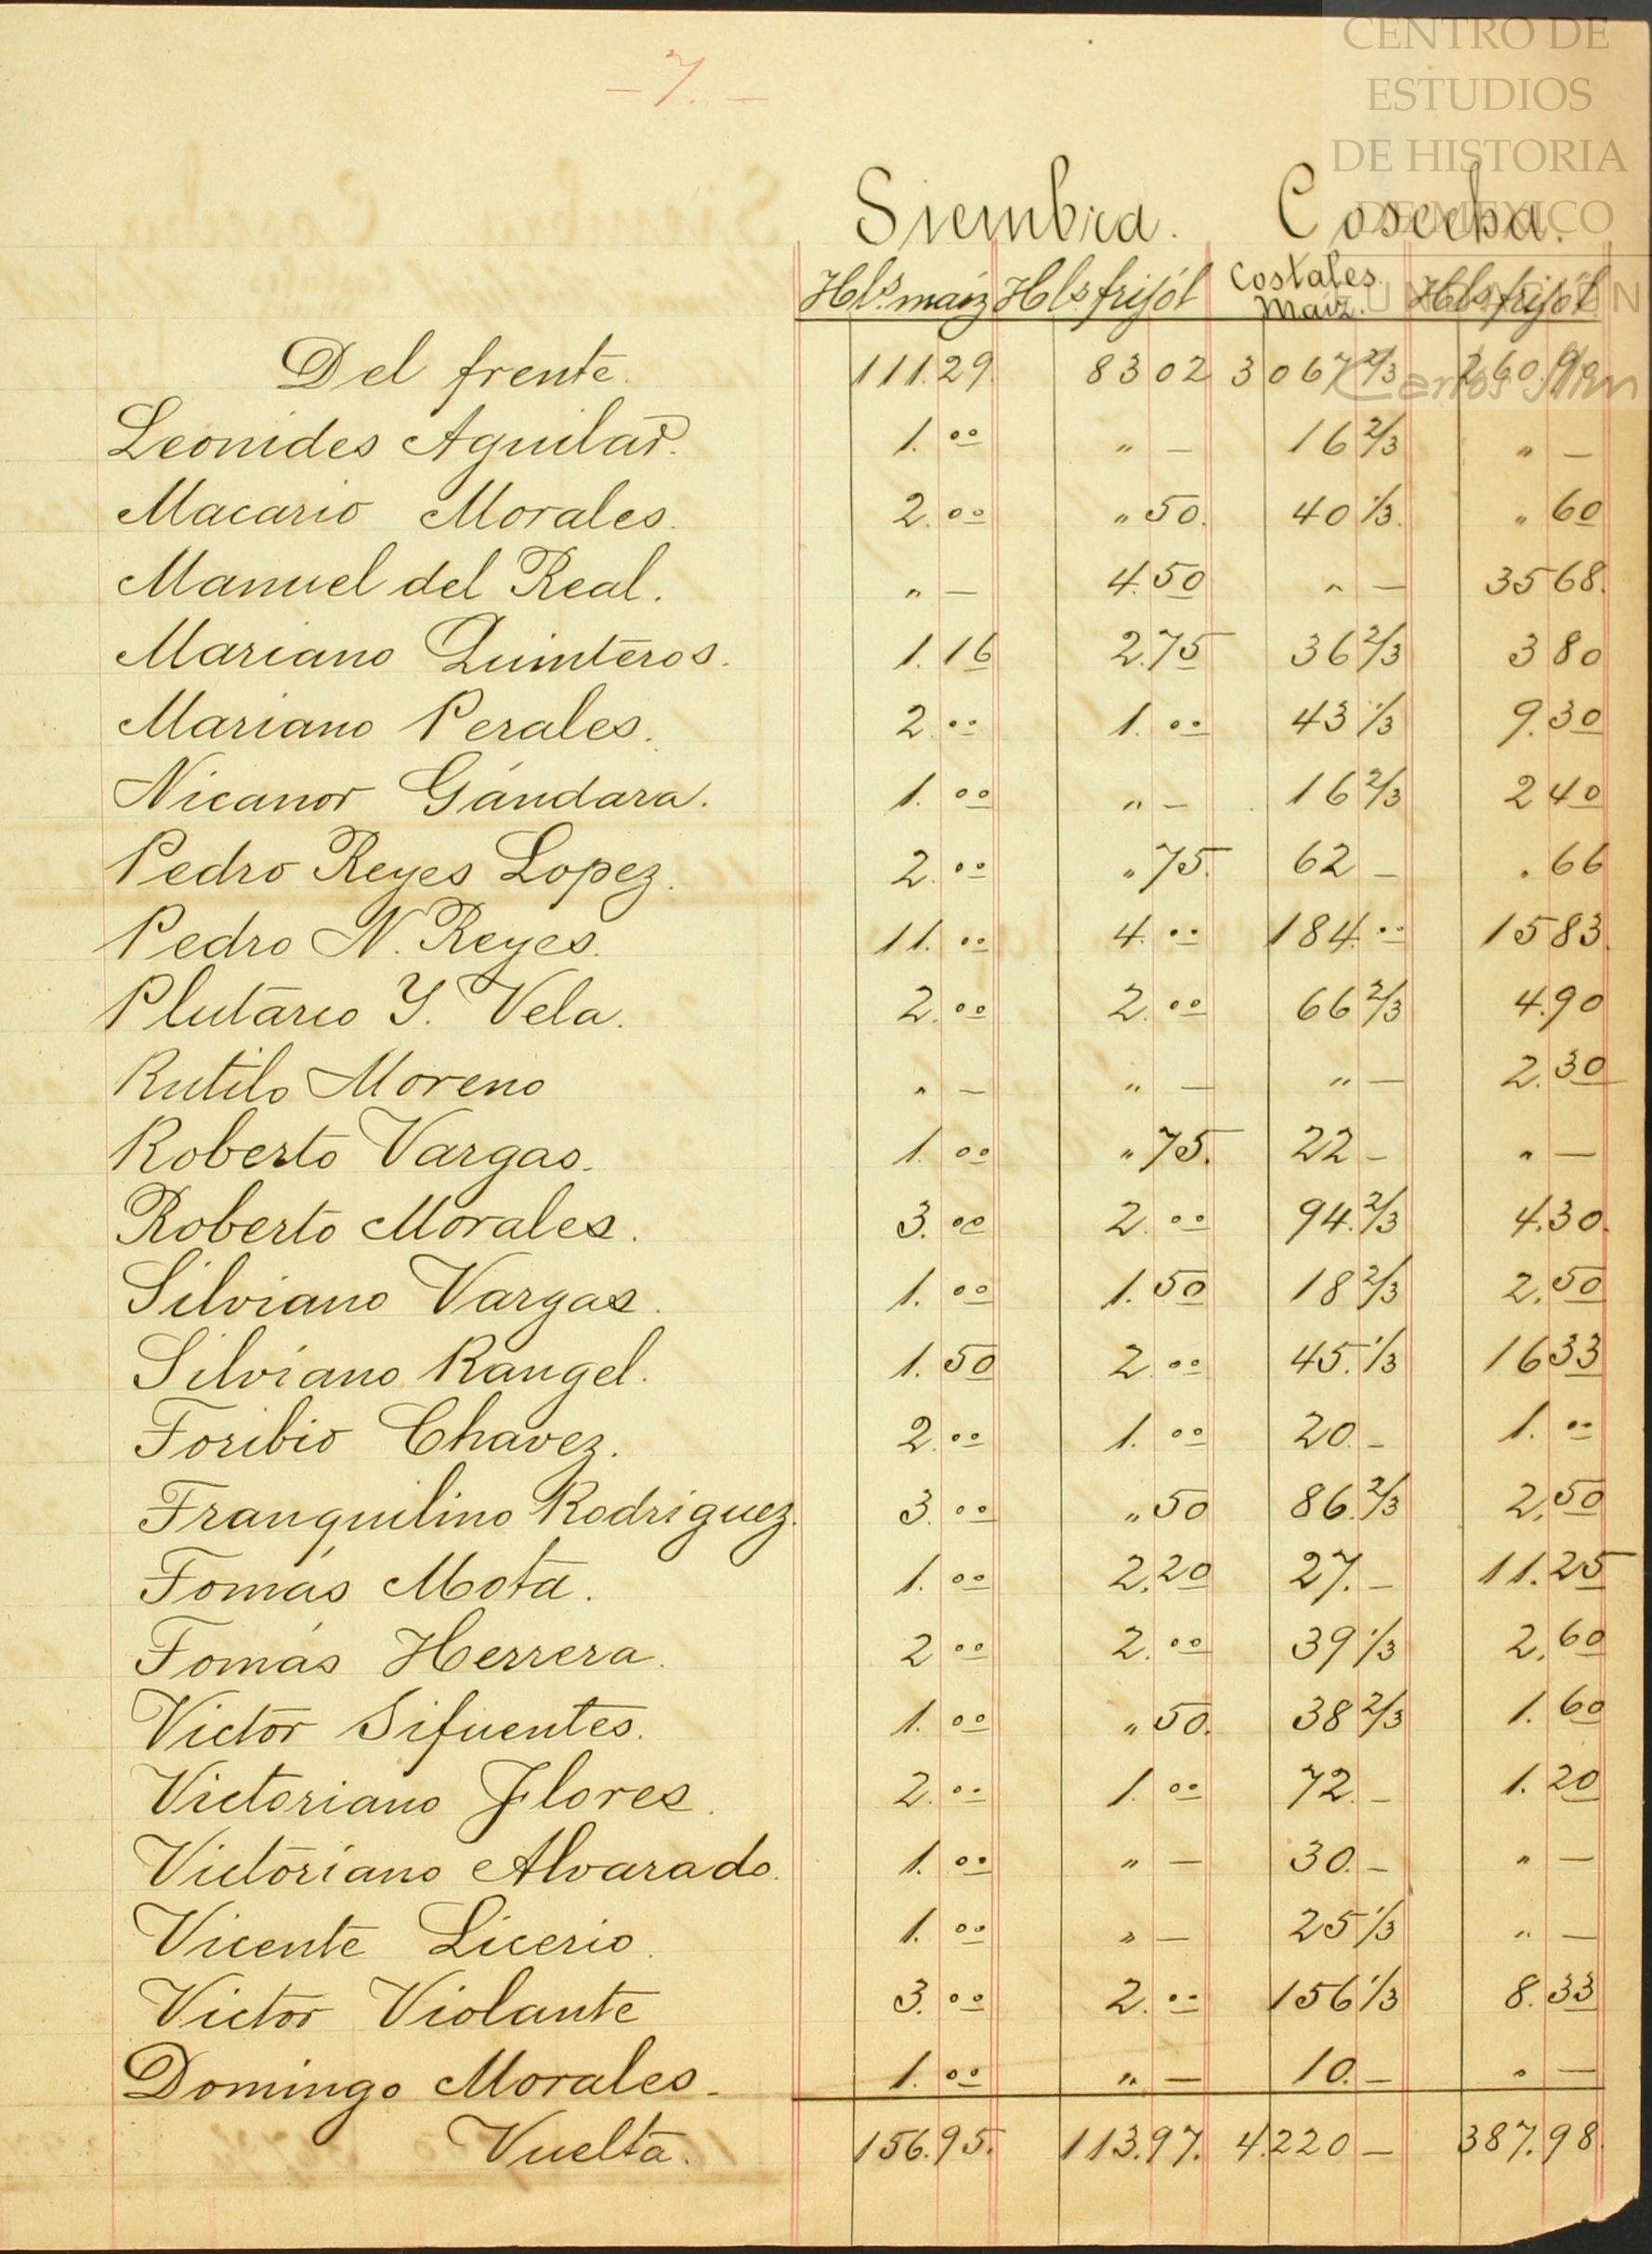 - 7. -
CENTRO DE
ESTUDIOS
DE HISTORIA
DE MEXICO
Siembra. Cosecha.
Hls. maiz Hls frijól Costales Maiz. Hls frijól
Del frente. 111.29. 83 02 3 067 2/3 260.90
Leonides Aguilar. 1.00 " — 16 2/3 " —
Macario Morales. 2.00 " 50. 40 1/3. " 60
Manuel del Real. " — 4.50 " — 35 68.
Mariano Quinteros. 1.16 2.75 36 2/3 3 80
Mariano Perales. 2.00 1.00 43 1/3 9.30
Nicanor Gándara. 1.00 " — 16 2/3 2 40
Pedro Reyes Lopez. 2.00 " 75. 62 — . 66
Pedro N. Reyes. 11.00 4.00 184.00 15 83.
Plutarco Y. Vela. 2.00 2.00 66 2/3 4.90
Rutilo Moreno " — " — " — 2.30
Roberto Vargas. 1.00 " 75. 22 — " —
Roberto Morales. 3.00 2.00 94. 2/3 4.30.
Silviano Vargas. 1.00 1.50 18 2/3 2.50
Silviano Rangel. 1.50 2.00 45. 1/3 16 33
Toribio Chavez. 2.00 1.00 20. — 1.00
Tranquilino Rodriguez. 3.00 " 50 86. 2/3 2,50
Tomás Mota. 1.00 2,20 27. — 11.25
Tomás Herrera. 2 00 2.00 39 1/3 2,60
Victor Sifuentes. 1.00 " 50. 38 2/3 1.60
Victoriano Flores. 2.00 1.00 72. — 1.20
Victoriano Alvarado. 1.00 " — 30. — " —
Vicente Licerio. 1.00 " — 25 1/3 " —
Victor Violante 3.00 2.00 156 1/3 8.33
Domingo Morales. 1.00 " — 10. — " —
Vuelta. 156.95. 113.97. 4.220 — 387.98.